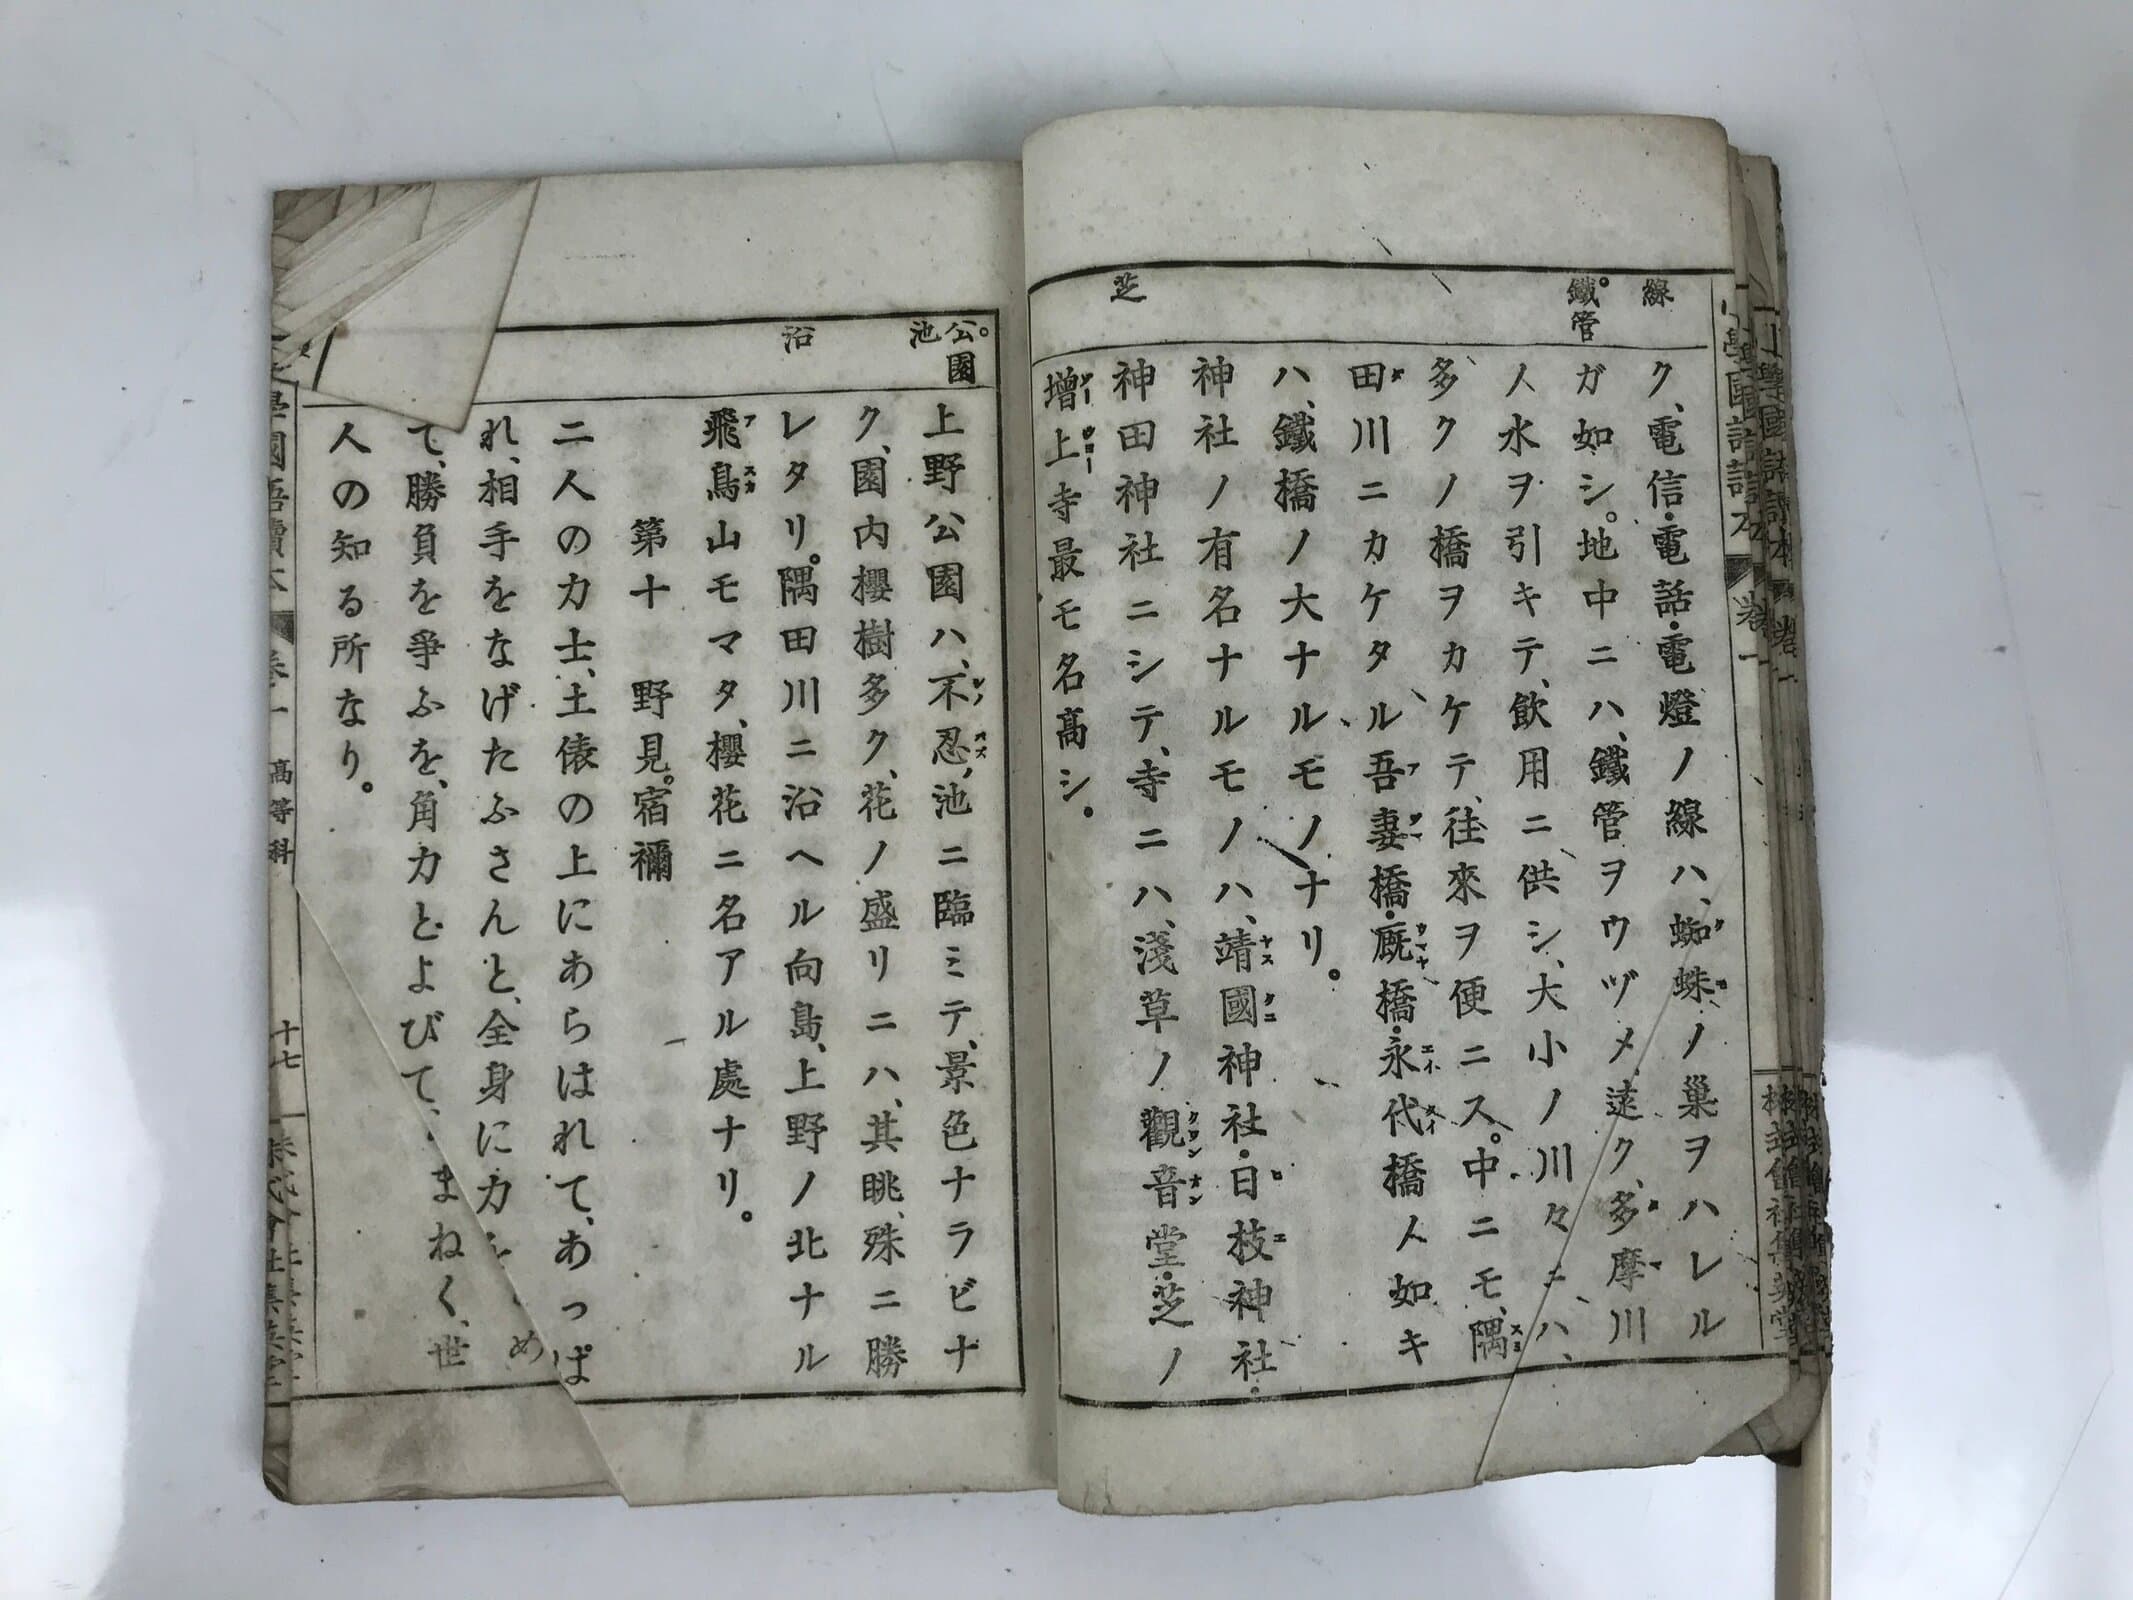 線
鐵管
芝
ク、電信・電話・電燈ノ線ハ、蜘蛛ノ巢ヲハレル
ガ如シ。地中ニハ、鐵管ヲウヅメ、遠ク、多摩川
ノ水ヲ引キテ、飲用ニ供シ、大小ノ川々ニハ、
多クノ橋ヲカケテ、往來ヲ便ニス。中ニモ、隅
田川ニカケタル吾妻橋・厩橋・永代橋ノ如キ
ハ、鐵橋ノ大ナルモノナリ。
神社ノ有名ナルモノハ、靖國神社・日枝神社・
神田神社ニシテ、寺ニハ、淺草ノ觀音堂・芝ノ
增上寺最モ名高シ。
公園
池
沿
上野公園ハ、不忍ノ池ニ臨ミテ、景色ナラビナ
ク、園内櫻樹多ク、花ノ盛リニハ、其眺、殊ニ勝
レタリ。隅田川ニ沿ヘル向島、上野ノ北ナル
飛鳥山モマタ、櫻花ニ名アル處ナリ。
第十 野見宿禰
二人の力士、土俵の上にあらはれて、あっぱ
れ、相手をなげたふさんと、全身に力 め
て、勝負を爭ふを、角力とよびて、まねく、世
人の知る所なり。
學國語讀本 卷一 高等科 十七